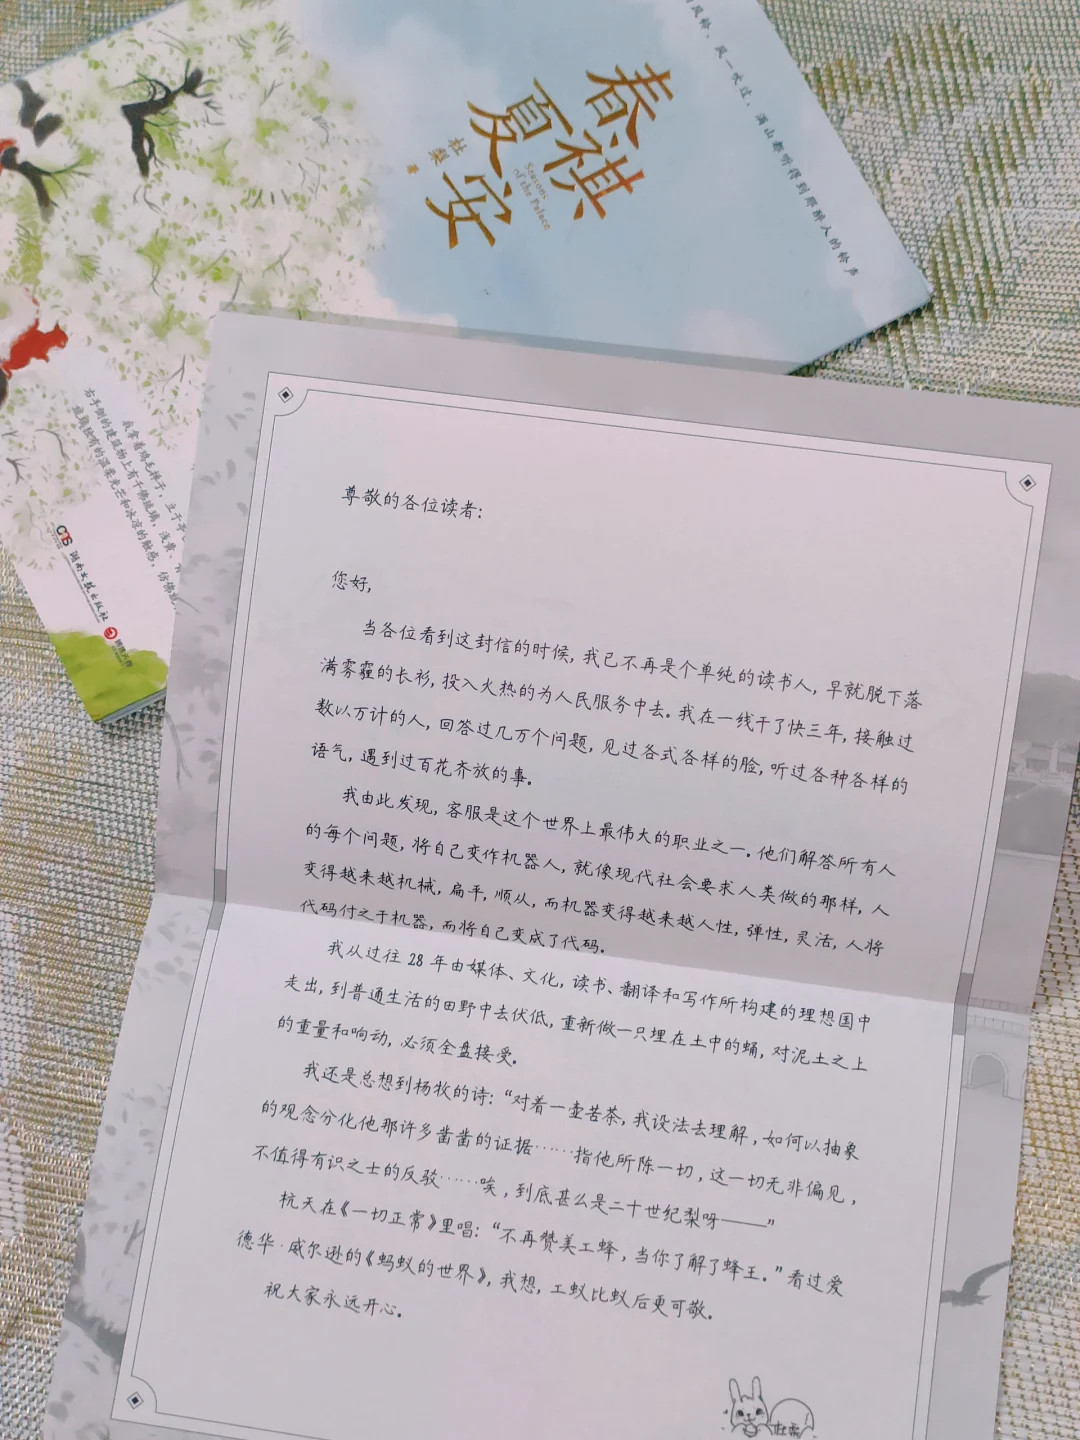 春祺
夏安
杜梨 著
Seasons
of the Palace
风一吹过，满山都听得到那醉人的铃声
我拿着鸡毛掸子，立于
右手侧的建筑物上有千佛琉璃，浅黄、
琉璃独有的温柔光芒和冰凉的触感，仿佛
湖南文艺出版社
博集天卷
尊敬的各位读者:
您好,
当各位看到这封信的时候, 我已不再是个单纯的读书人, 早就脱下落
满雾霾的长衫, 投入火热的为人民服务中去。我在一线干了快三年, 接触过
数以万计的人, 回答过几万个问题, 见过各式各样的脸, 听过各种各样的
语气, 遇到过百花齐放的事。
我由此发现, 客服是这个世界上最伟大的职业之一。他们解答所有人
的每个问题, 将自己变作机器人, 就像现代社会要求人类做的那样, 人
变得越来越机械, 扁平, 顺从, 而机器变得越来越人性, 弹性, 灵活, 人将
代码付之于机器, 而将自己变成了代码。
我从过往 28 年由媒体、文化, 读书、翻译和写作所构建的理想国中
走出, 到普通生活的田野中去伏低, 重新做一只埋在土中的蛹, 对泥土之上
的重量和响动, 必须全盘接受。
我还是总想到杨牧的诗: “对着一壶苦茶, 我设法去理解, 如何以抽象
的观念分化他那许多凿凿的证据……指他所陈一切, 这一切无非偏见,
不值得有识之士的反驳……唉, 到底甚么是二十世纪梨呀——”
杭天在《一切正常》里唱: “不再赞美工蜂, 当你了解了蜂王。” 看过爱
德华·威尔逊的《蚂蚁的世界》, 我想, 工蚁比蚁后更可敬。
祝大家永远开心。
杜梨